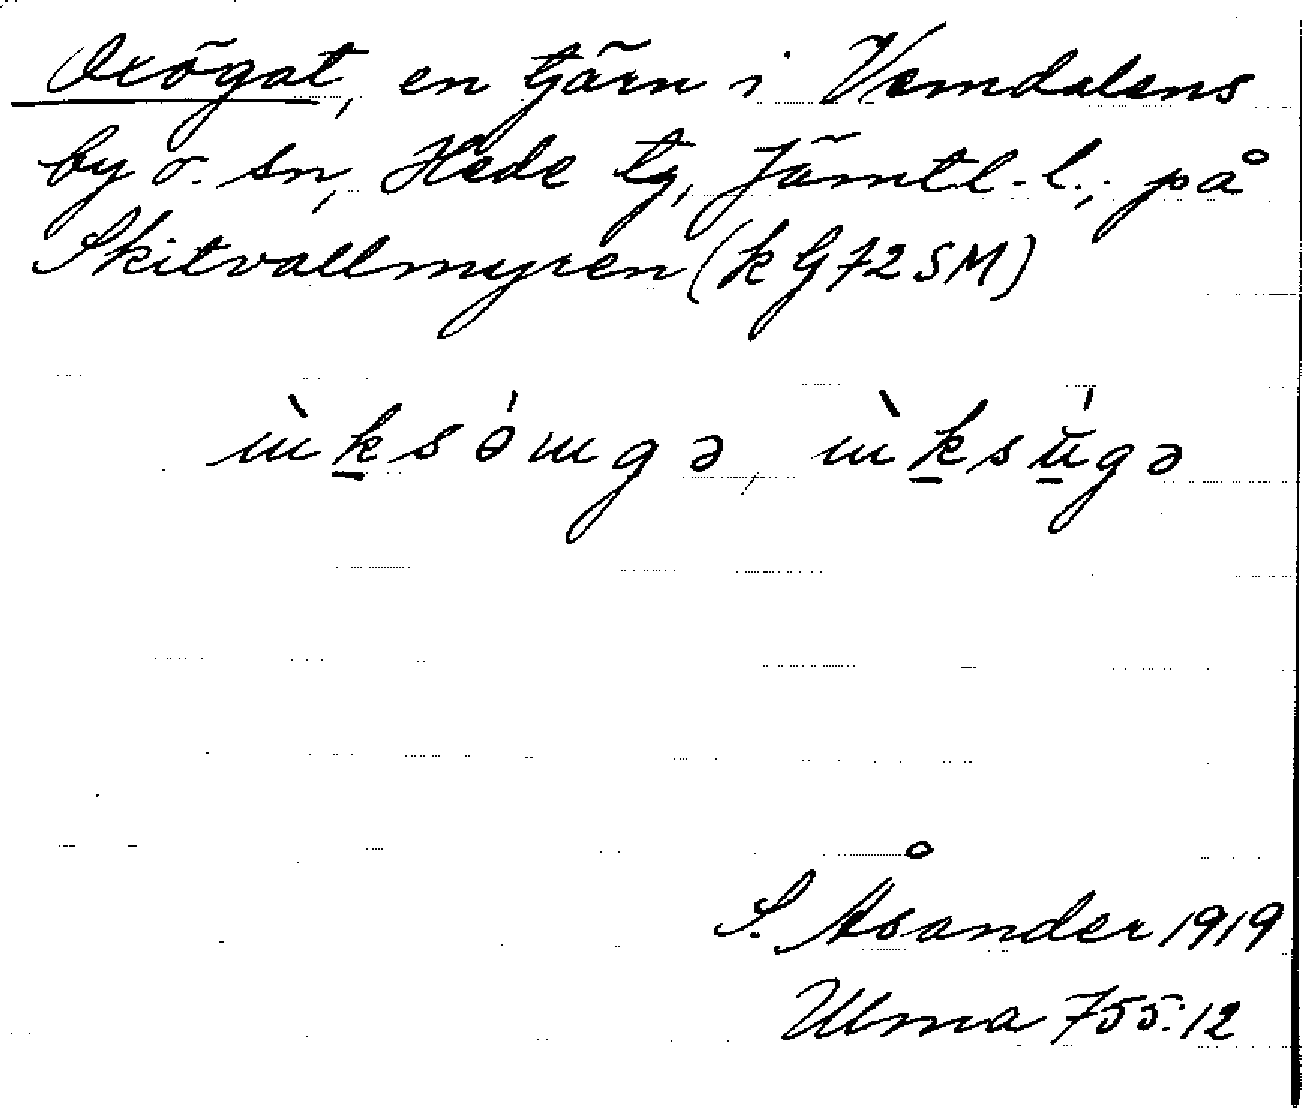 Oxögat, en tjärn i Vemdalens
by o. sn, Hede tg, Jämtl. l.; på
Skitvallmyren (k G 72 SM)
S. Åsander 1919
Ulma 755:12